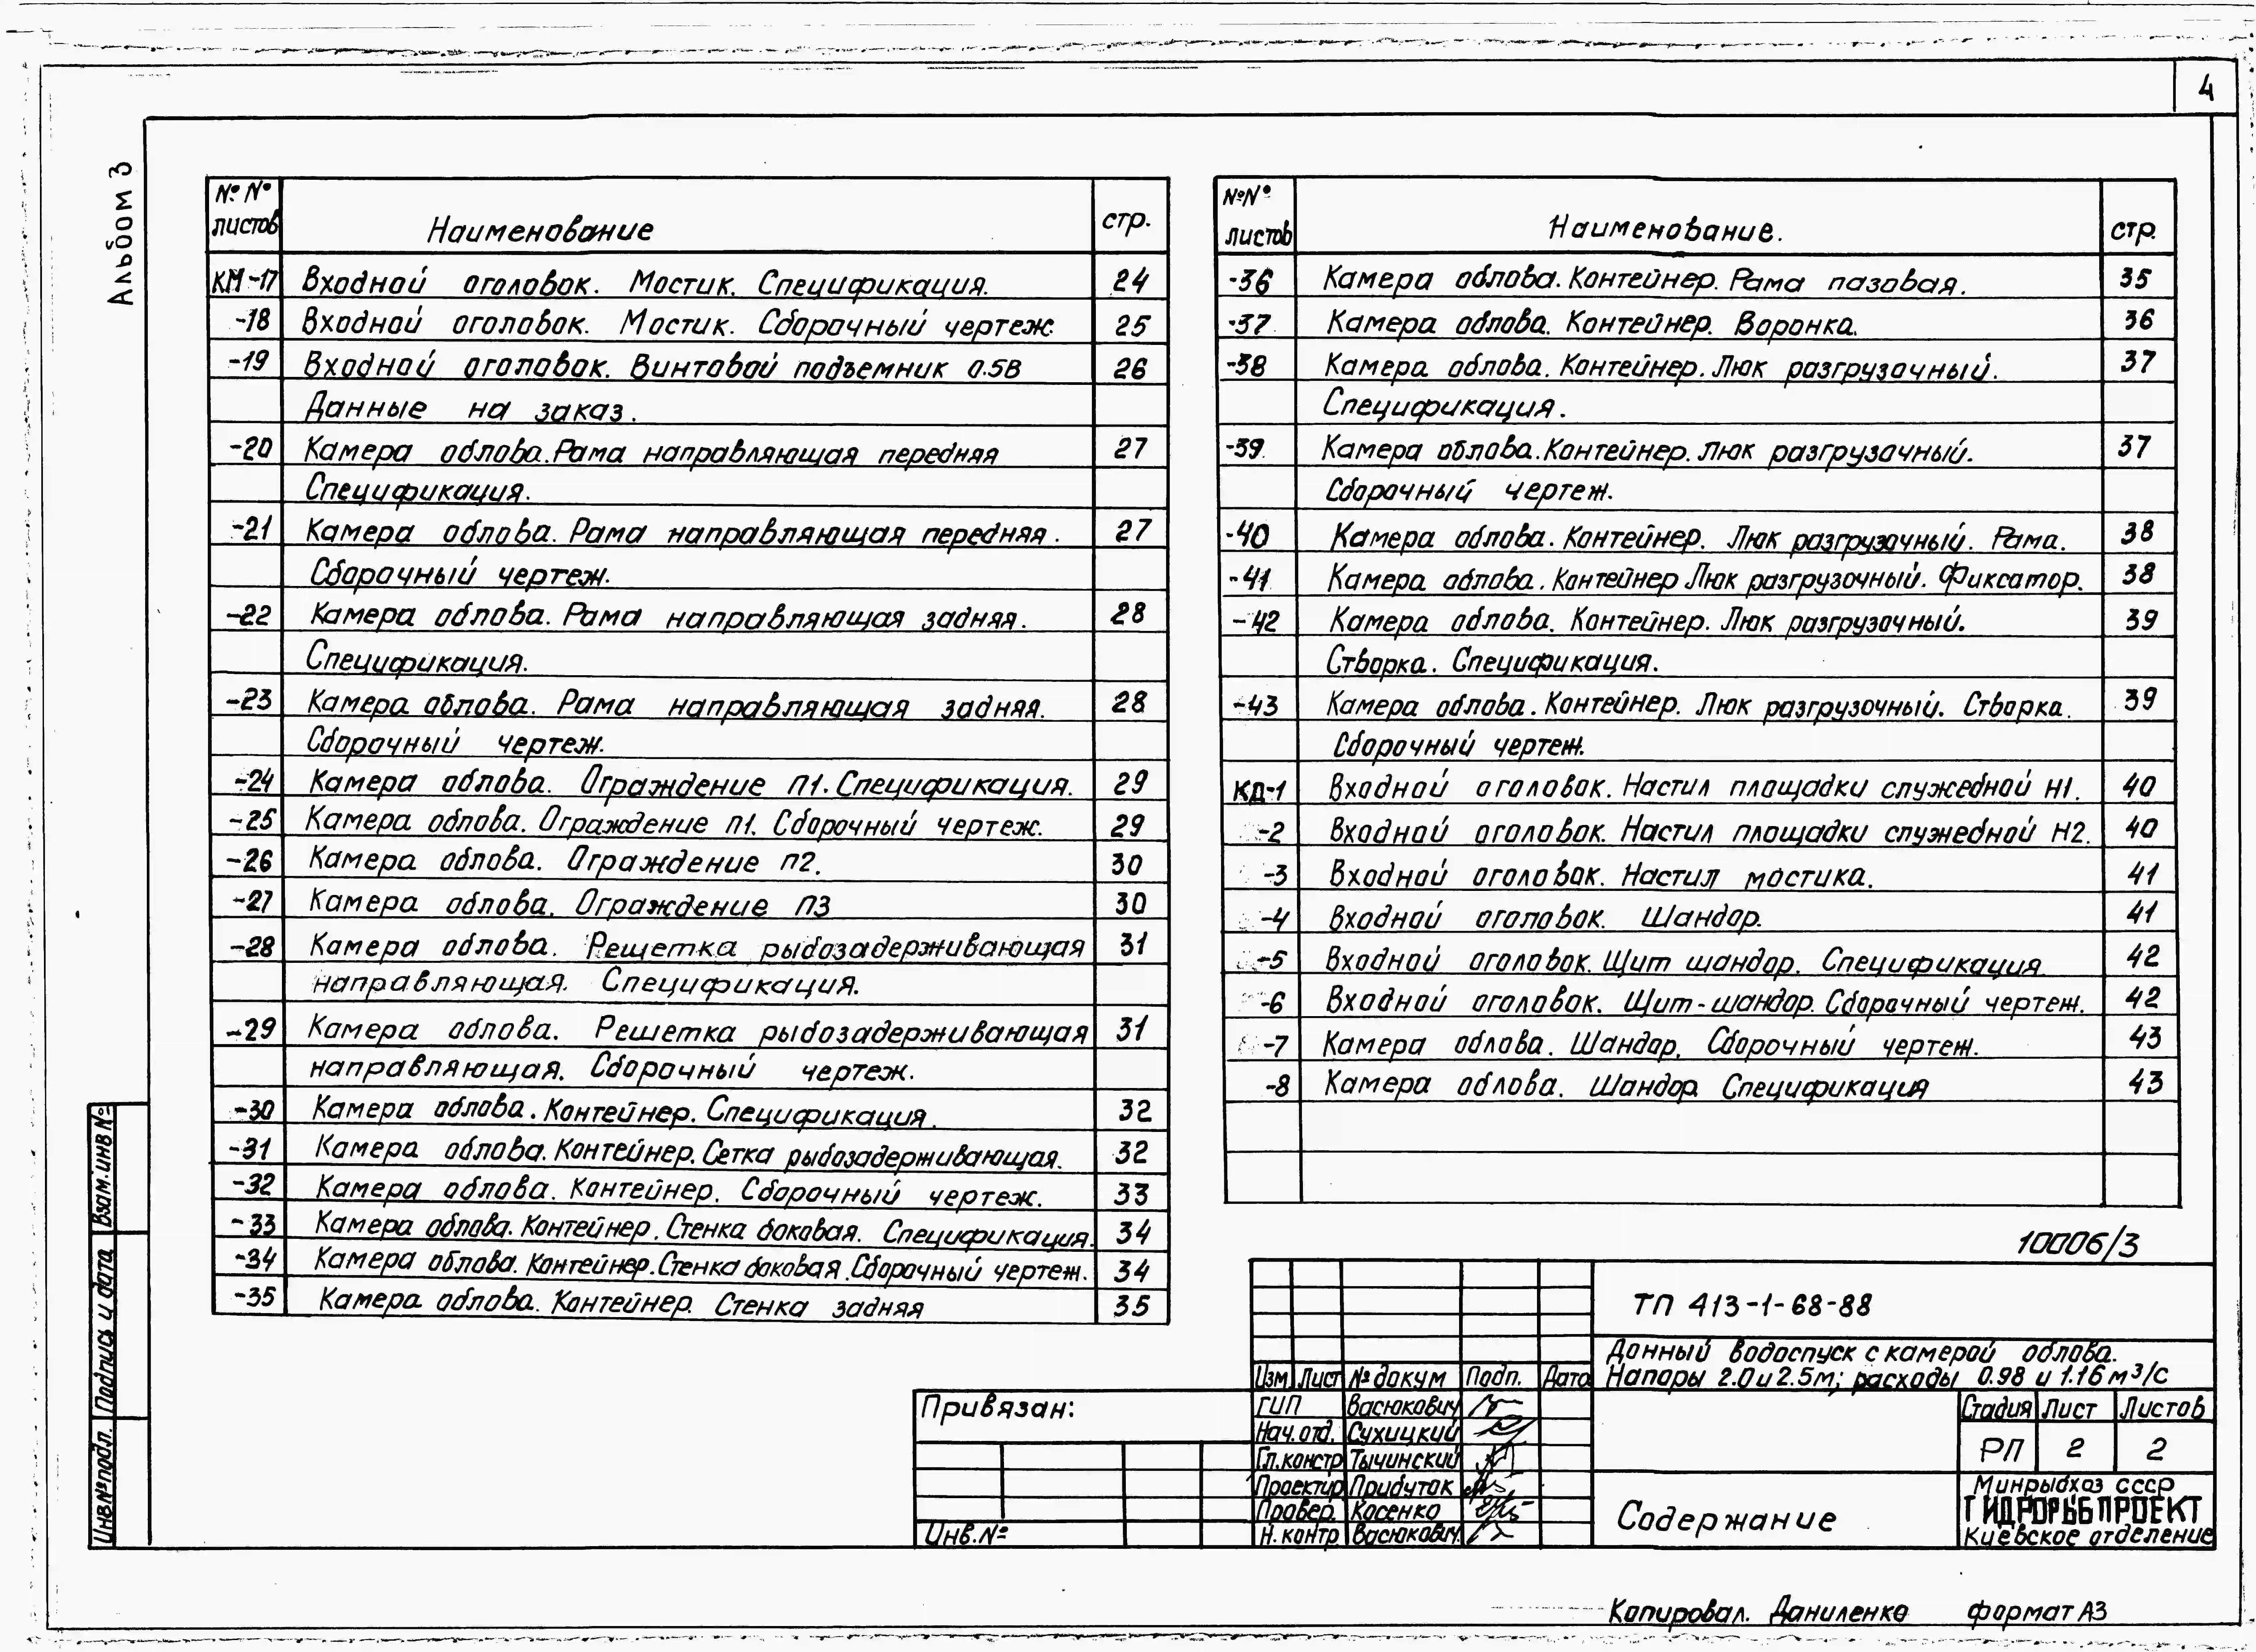 4
Альбом 3
№№ листов Наименование стр.
КМ-17 Входной оголовок. Мостик. Спецификация. 24
-18 Входной оголовок. Мостик. Сборочный чертеж 25
-19 Входной оголовок. Винтовой подъемник 0.5В 26
Данные на заказ.
-20 Камера облова. Рама направляющая передняя 27
Спецификация.
-21 Камера облова. Рама направляющая передняя. 27
Сборочный чертеж.
-22 Камера облова. Рама направляющая задняя. 28
Спецификация.
-23 Камера облова. Рама направляющая задняя. 28
Сборочный чертеж.
-24 Камера облова. Ограждение П1. Спецификация. 29
-25 Камера облова. Ограждение П1. Сборочный чертеж. 29
-26 Камера облова. Ограждение П2. 30
-27 Камера облова. Ограждение П3 30
-28 Камера облова. Решетка рыбозадерживающая 31
направляющая. Спецификация.
-29 Камера облова. Решетка рыбозадерживающая 31
направляющая. Сборочный чертеж.
-30 Камера облова. Контейнер. Спецификация. 32
-31 Камера облова. Контейнер. Сетка рыбозадерживающая. 32
-32 Камера облова. Контейнер. Сборочный чертеж. 33
-33 Камера облова. Контейнер. Стенка боковая. Спецификация. 34
-34 Камера облова. Контейнер. Стенка боковая. Сборочный чертеж. 34
-35 Камера облова. Контейнер. Стенка задняя 35
№№ листов Наименование. стр.
-36 Камера облова. Контейнер. Рама пазовая. 35
-37 Камера облова. Контейнер. Воронка. 36
-38 Камера облова. Контейнер. Люк разгрузочный. 37
Спецификация.
-39 Камера облова. Контейнер. Люк разгрузочный. 37
Сборочный чертеж.
-40 Камера облова. Контейнер. Люк разгрузочный. Рама. 38
-41 Камера облова. Контейнер Люк разгрузочный. Фиксатор. 38
-42 Камера облова. Контейнер. Люк разгрузочный. 39
Створка. Спецификация.
-43 Камера облова. Контейнер. Люк разгрузочный. Створка. 39
Сборочный чертеж.
КД-1 Входной оголовок. Настил площадки служебной Н1. 40
-2 Входной оголовок. Настил площадки служебной Н2. 40
-3 Входной оголовок. Настил мостика. 41
-4 Входной оголовок. Шандор. 41
-5 Входной оголовок. Щит шандор. Спецификация 42
-6 Входной оголовок. Щит-шандор. Сборочный чертеж. 42
-7 Камера облова. Шандор. Сборочный чертеж. 43
-8 Камера облова. Шандор. Спецификация 43
10006/3
ТП 413-1-68-88
Донный водоспуск с камерой облова.
Напоры 2.0 и 2.5м; расходы 0.98 и 1.16 м³/с
Изм Лист № докум Подп. Дата
ГИП Васюкович
Нач. отд. Сухицкий
Гл. констр Тычинский
Проектир Прибуток
Провер. Косенко
Н. контр Васюкович
Стадия Лист Листов
РП 2 2
Содержание
Минрыбхоз СССР
ГИДРОРЫБПРОЕКТ
Киевское отделение
Привязан:
Инв.№
Взам. инв №
Подпись и дата
Инв № подл.
Копировал. Даниленко формат А3